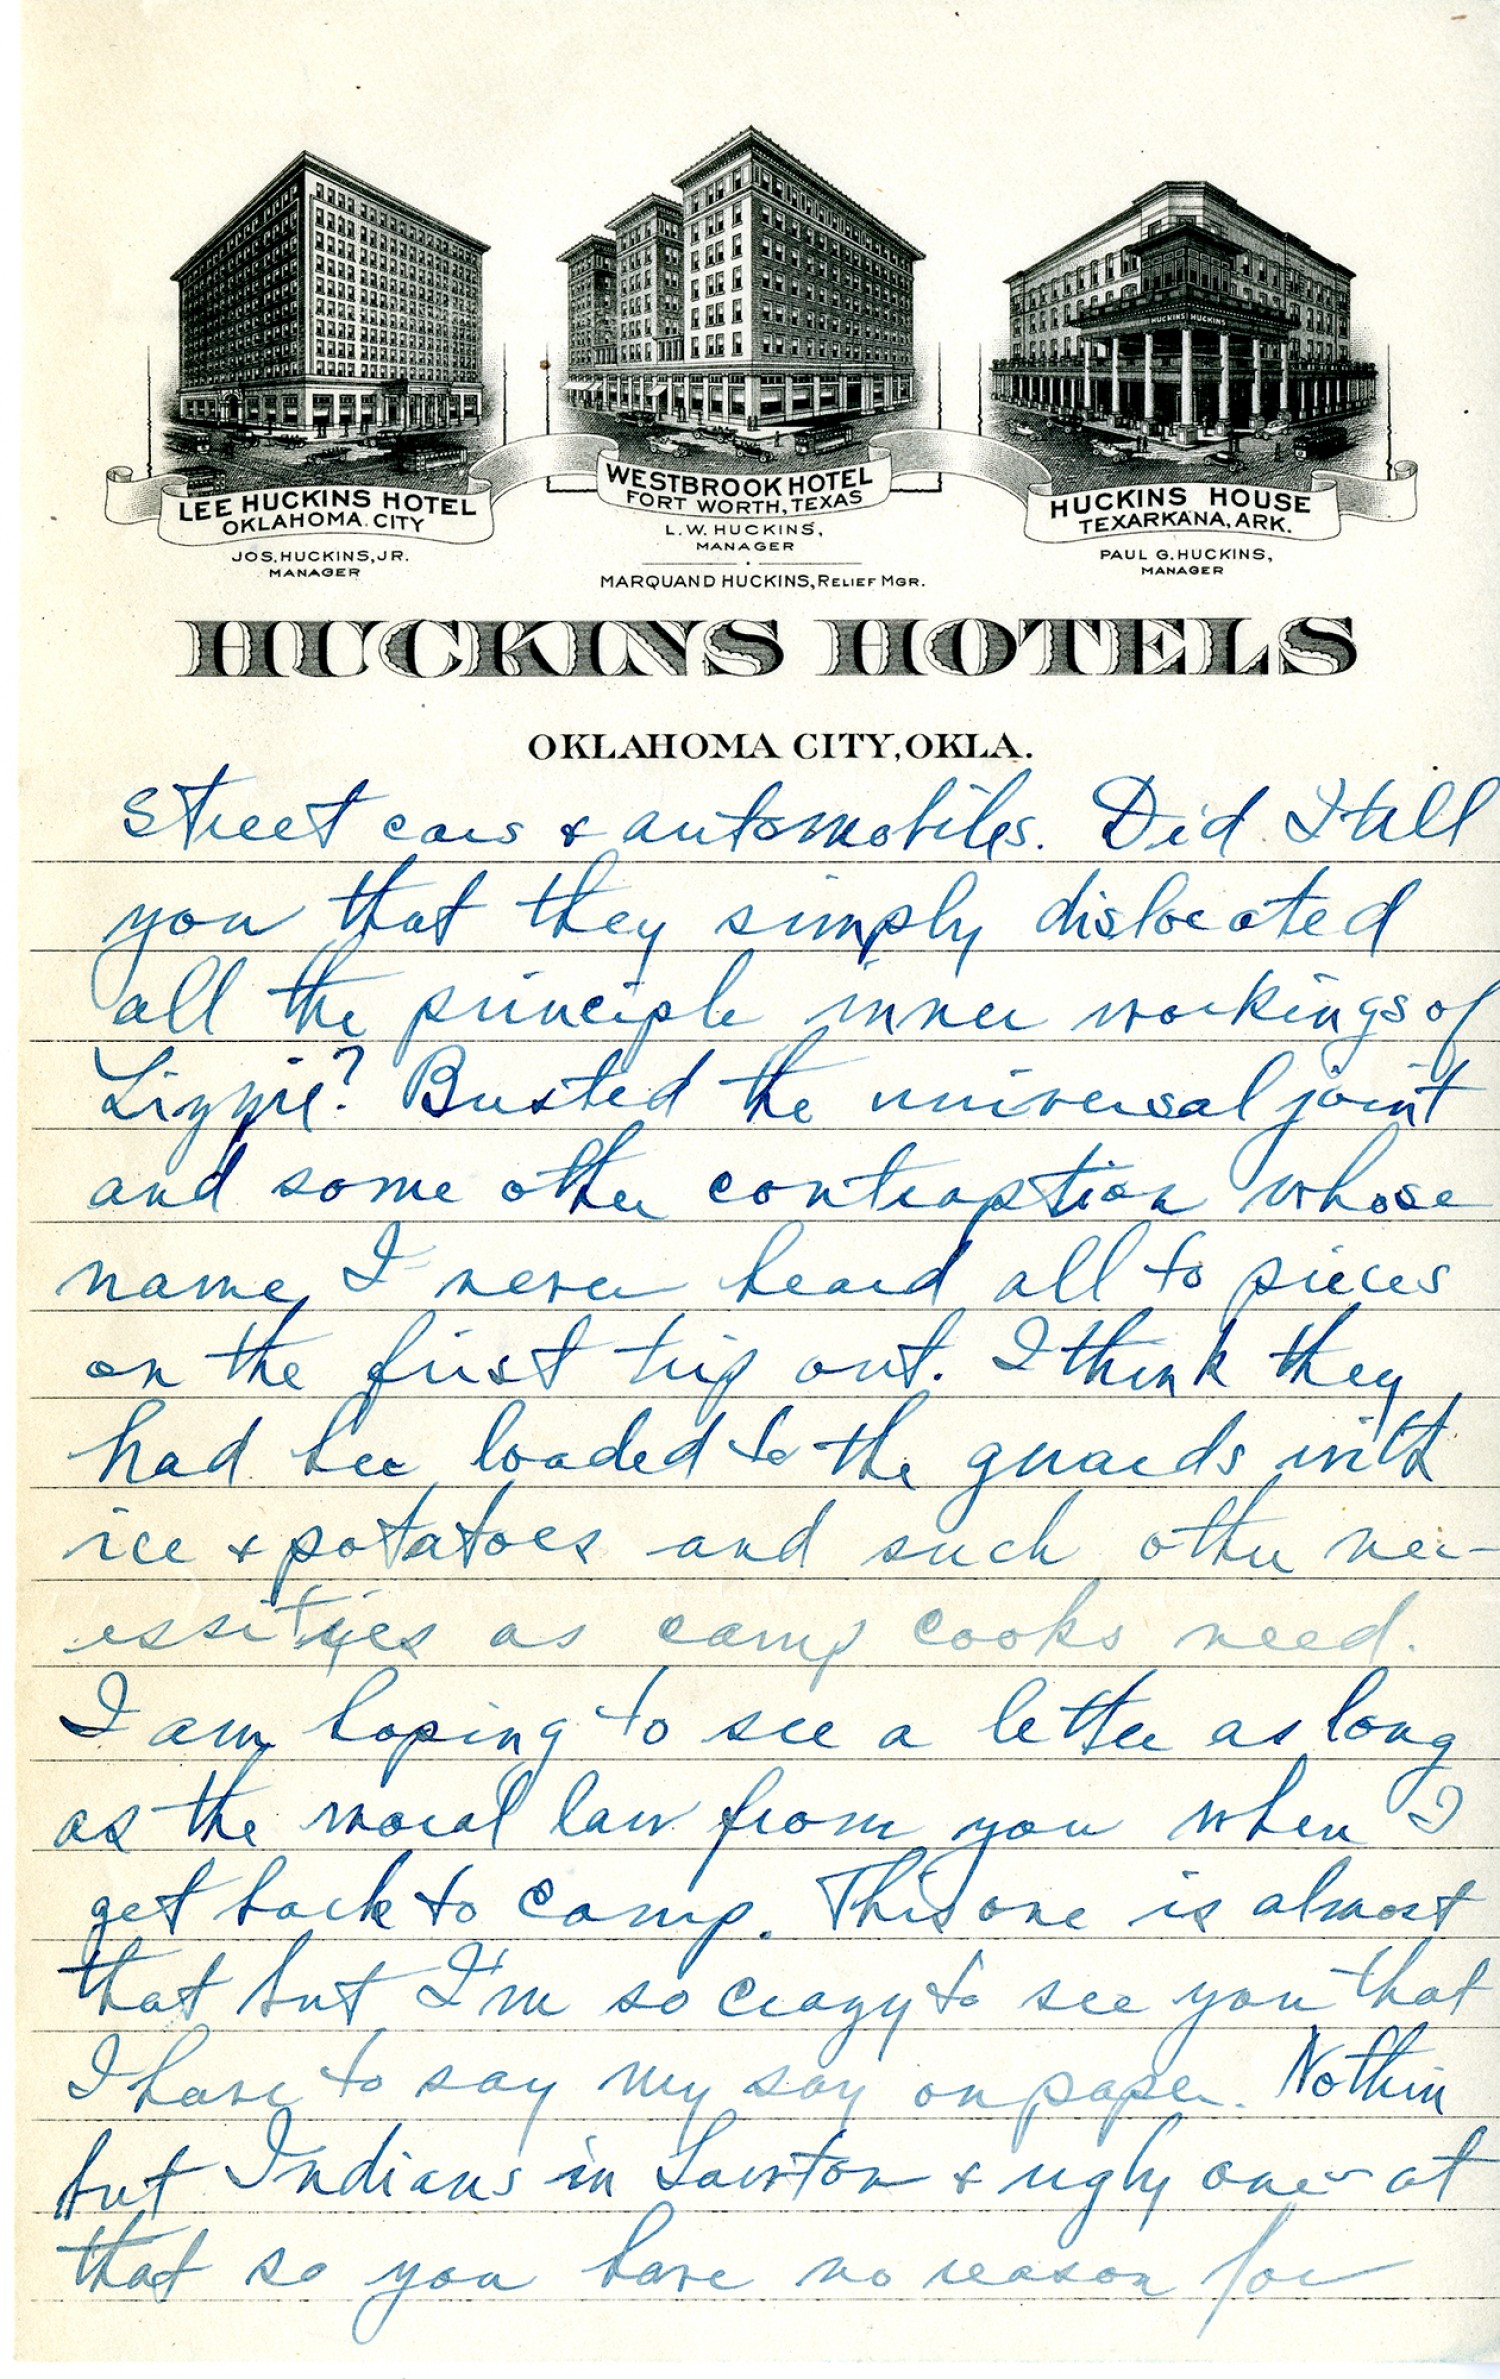 HUCKINS HUCKINS
LEE HUCKINS HOTEL
OKLAHOMA CITY
JOS. HUCKINS, JR.
MANAGER
WESTBROOK HOTEL
FORT WORTH, TEXAS
L. W. HUCKINS,
MANAGER
MARQUAND HUCKINS, RELIEF MGR.
HUCKINS HOUSE
TEXARKANA, ARK.
PAUL G. HUCKINS,
MANAGER
HUCKINS HOTELS
OKLAHOMA CITY, OKLA.
street cars & automobiles. Did I tell
you that they simply dislocated
all the principle inner workings of
Lizzie? Busted the universal joint
and some other contraption whose
name I never heard all to pieces
on the first trip out. I think they
had her loaded to the guards with
ice & potatoes and such other nec-
essities as camp cooks need.
I am hoping to see a letter as long
as the moral law from you when I
get back to camp. This one is almost
that but I'm so crazy to see you that
I have to say my say on paper. Nothin
but Indians in Lawton & ugly ones at
that so you have no reason for